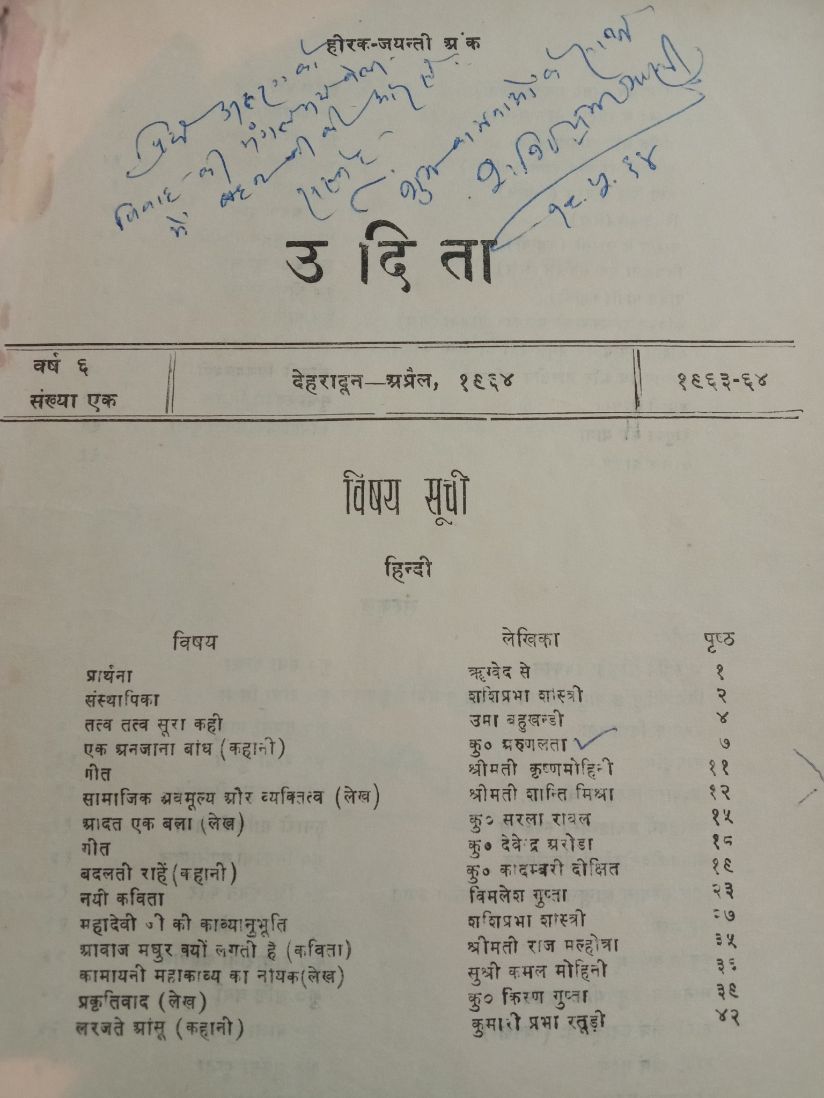 हीरक-जयन्ती अंक
विवाह की मंगलमय बेला
में बहन जी की ओर से
सस्नेह
शुभ कामनाओं के साथ
उ दि ता
वर्ष ६
संख्या एक
देहरादून—अप्रैल, १९६४
१९६३-६४
विषय सूची
हिन्दी
विषय लेखिका पृष्ठ
प्रार्थना ऋग्वेद से १
संस्थापिका शशिप्रभा शास्त्री २
तत्व तत्व सूरा कही उमा बहुखन्डी ४
एक अनजाना बांध (कहानी) कु० अरुणलता ७
गीत श्रीमती कृष्णमोहिनी ११
सामाजिक अवमूल्य और व्यक्तित्व (लेख) श्रीमती शान्ति मिश्रा १२
आदत एक बला (लेख) कु० सरला रावल १५
गीत कु० देवेन्द्र अरोडा १८
बदलती राहें (कहानी) कु० कादम्बरी दीक्षित १९
नयी कविता विमलेश गुप्ता २३
महादेवी जी की काव्यानुभूति शशिप्रभा शास्त्री २७
आवाज मधुर क्यों लगती है (कविता) श्रीमती राज मल्होत्रा ३५
कामायनी महाकाव्य का नायक (लेख) सुश्री कमल मोहिनी ३६
प्रकृतिवाद (लेख) कु० किरण गुप्ता ३९
लरजते आंसू (कहानी) कुमारी प्रभा रतूड़ी ४२